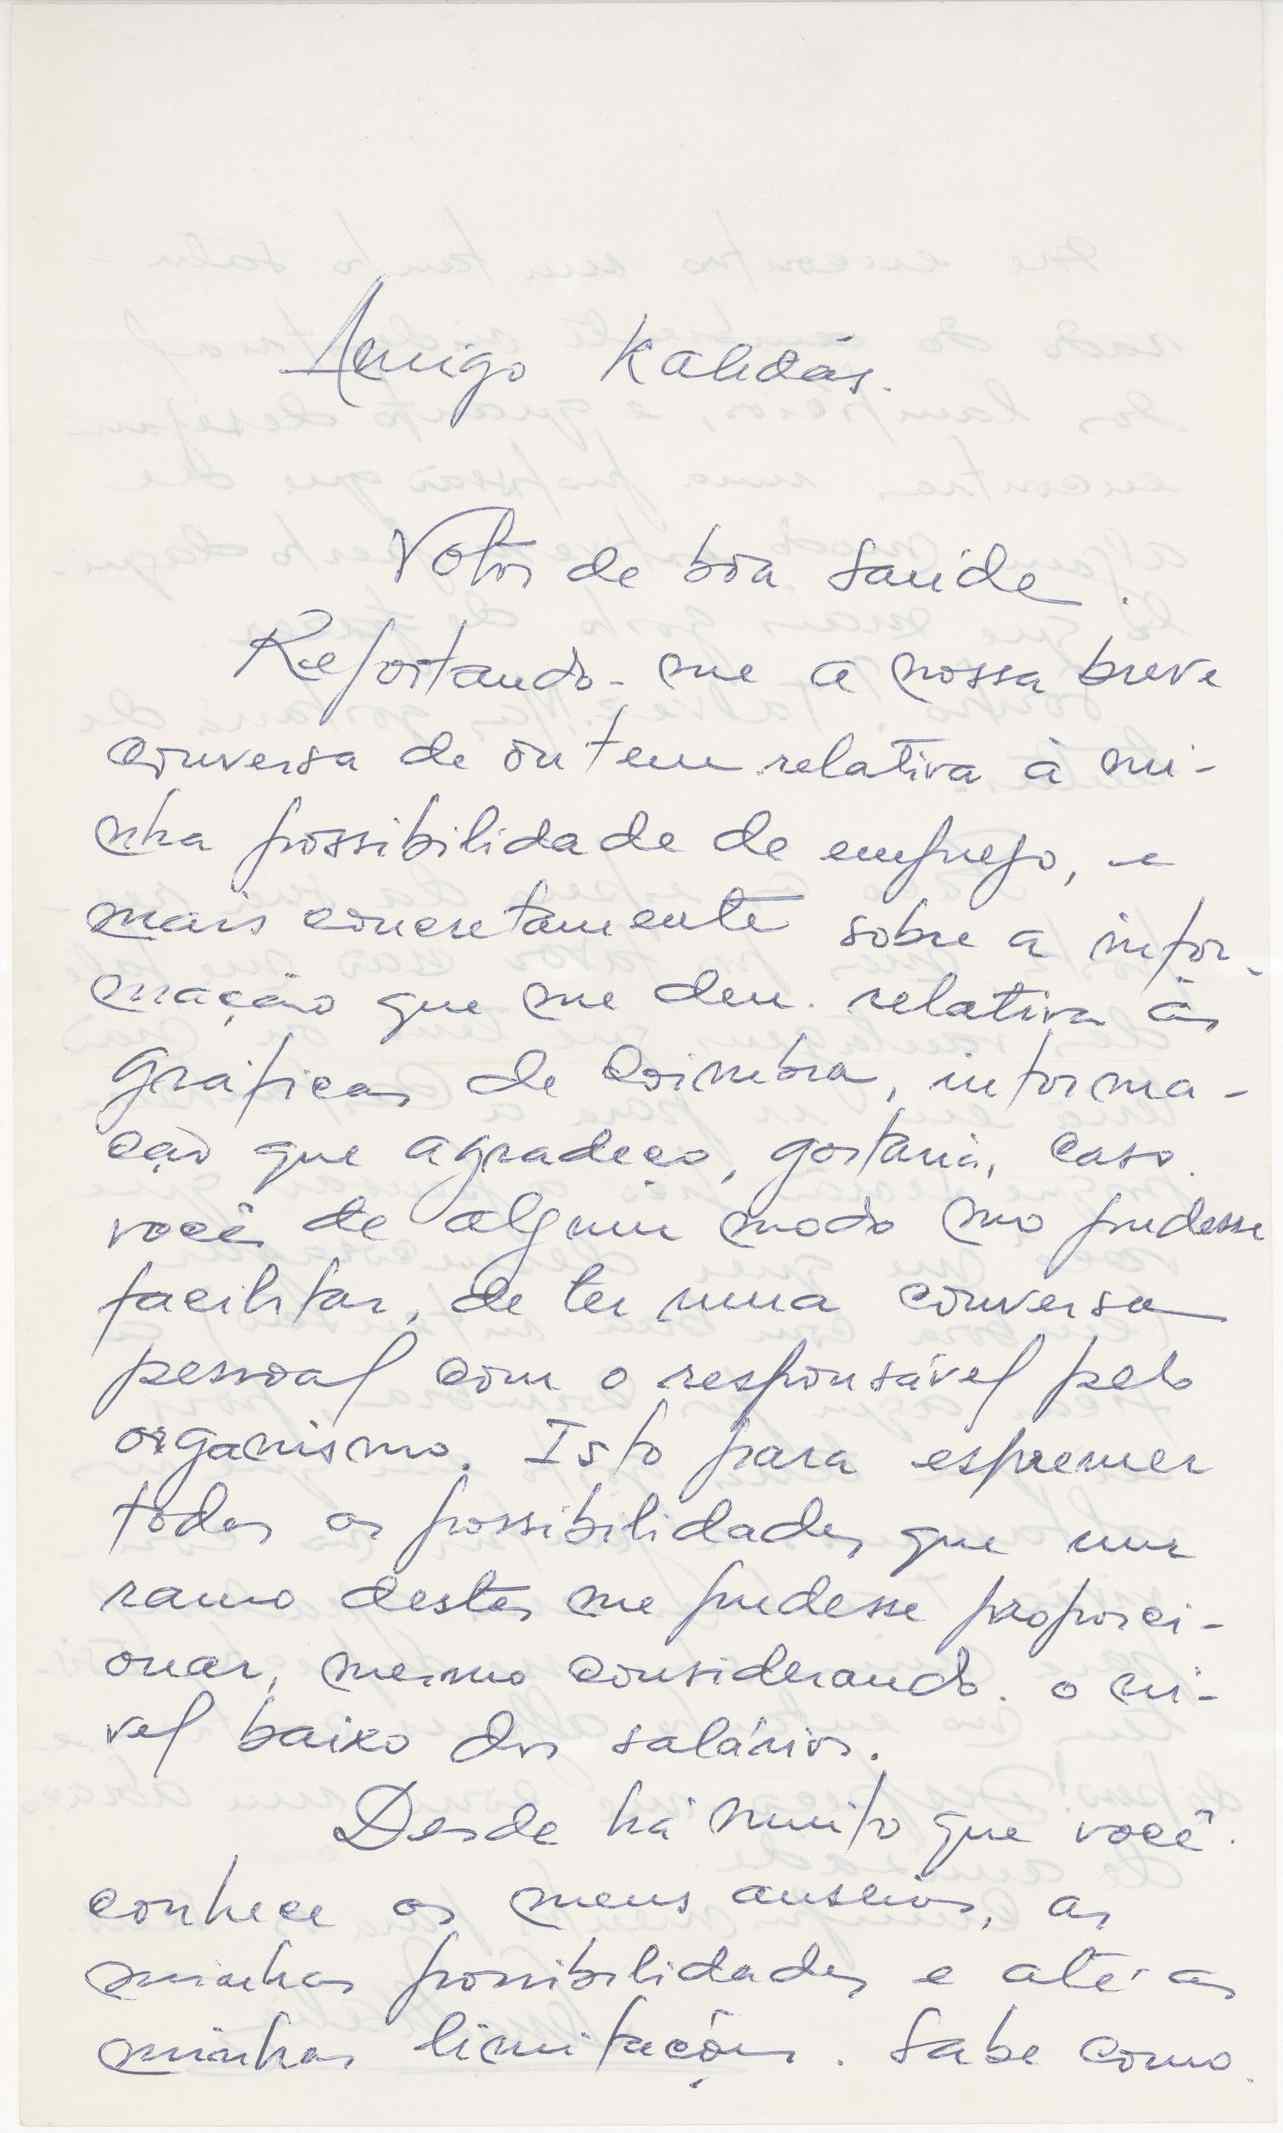 Amigo Kalidás.
Votos de boa saúde.
Reportando-me a nossa breve
conversa de ontem relativa à mi-
nha possibilidade de emprego, e
mais concretamente sobre a infor-
mação que me deu relativa às
gráficas de Coimbra, informa-
ção que agradeço, gostaria, caso
você de algum modo mo pudesse
facilitar, de ter uma conversa
pessoal com o responsável pelo
organismo. Isto para espremer
todas as possibilidades que um
ramo destes me pudesse proporci-
onar, mesmo considerando o ní-
vel baixo dos salários.
Desde há muito que você
conhece os meus anseios, as
minhas possibilidades e até as
minhas limitações. Sabe como